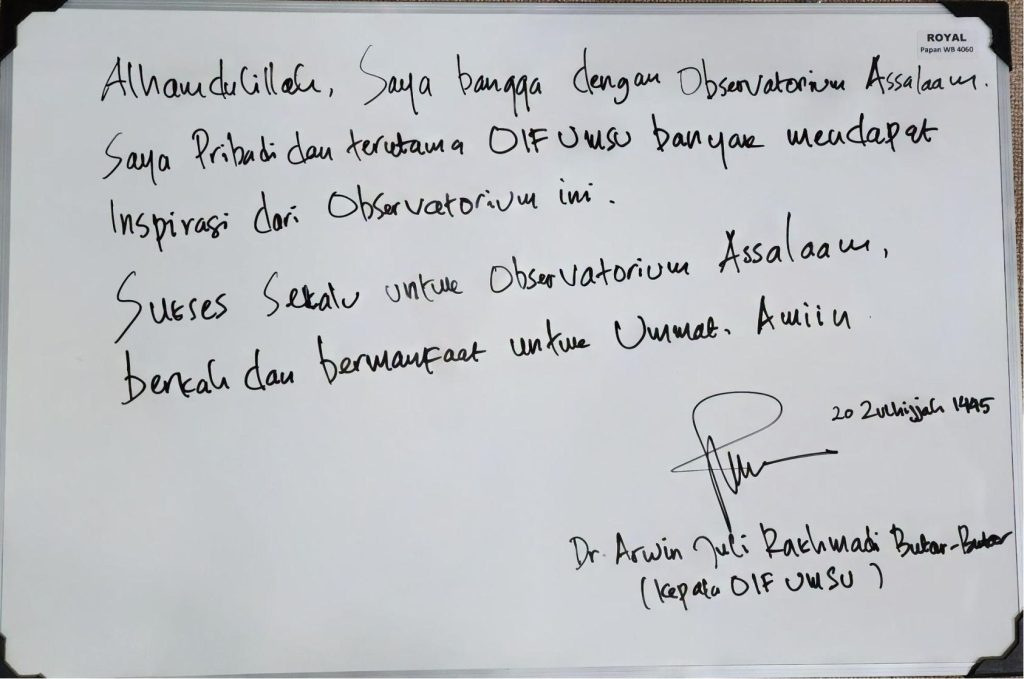 ROYAL
Papan WB 4060
Alhamdulillah, Saya bangga dengan Observatorium Assalaam.
Saya Pribadi dan terutama OIF UMSU banyak mendapat
Inspirasi dari Observatorium ini.
Sukses Selalu untuk Observatorium Assalaam,
berkah dan bermanfaat untuk Ummat. Amiin
20 Zulhijjah 1445
Dr. Arwin Juli Rakhmadi Butar-Butar
(Kepala OIF UMSU)